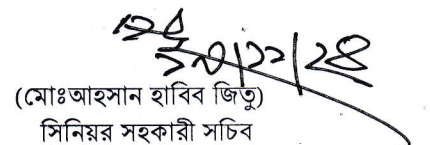 (মোঃআহসান হাবিব জিতু)
সিনিয়র সহকারী সচিব